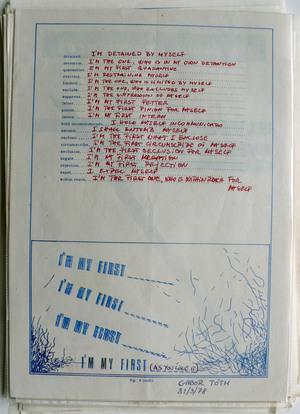 detained: I'M DETAINED BY MYSELF
detention: I'M THE ONE, WHO IS IN MY OWN DETANTION
quarantine: I'M MY FIRST QUARANTINE
restrain: I'M RESTRAINING MYSELF
I'M THE ONE, WHO IS LIMITED BY MYSELF
exclude: I'M THE ONE, WHO EXCLUDES MYSELF
suppress: I'M THE SUPPRESSION OF MYSELF
fetter: I'M MY FIRST FETTER
I'M THE FIRST PINION FOR MYSELF
intern: I'M MY FIRST INTERN
hold incommunicado: I HOLD MYSELF INCOMMUNICADO
I SHALL ENTOMB MYSELF
enclose: I'M THE FIRST THAT I ENCLOSE
circumscribe: I'M THE FIRST CIRCUMSCRIBE OF MYSELF
seclusion: I'M THE FIRST SECLUSION FOR MYSELF
negate: I'M MY FIRST NEGATION
reject: I'M MY FIRST REJECTION
expel: I EXPEL MYSELF
within reach: I'M THE FIRST ONE, WHO IS WITHIN REACH FOR
MYSELF
I'M MY FIRST
I'M MY FIRST
I'M MY FIRST
I'M MY FIRST (AS YOU LIKE IT)
GABOR TÓTH
31/3/78